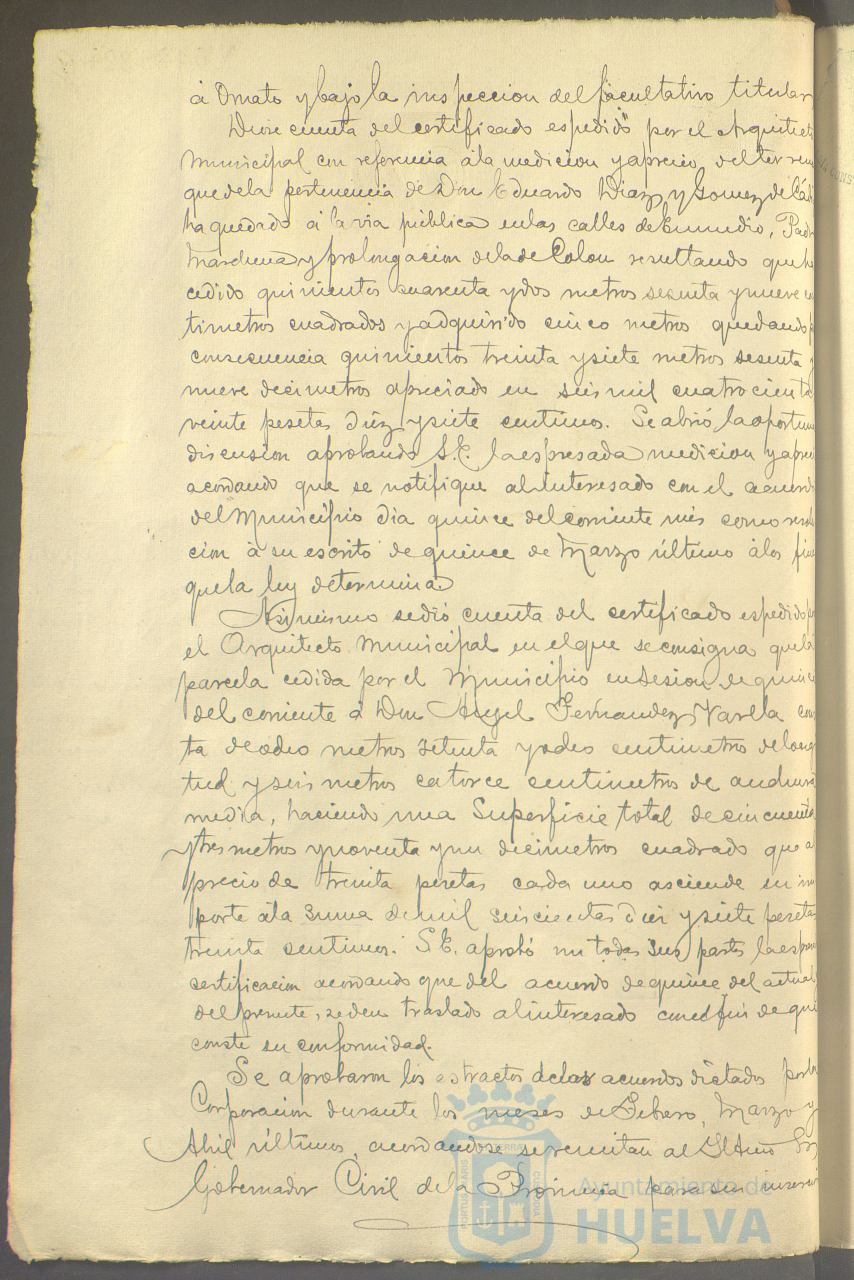 á Ornato y bajo la inspeccion del facultativo titular
Diose cuenta del certificado espedido por el Arquitecto
Municipal con referencia á la medicion y aprecio del terreno
que de la pertenencia de Don Eduardo Diaz y Gomez de Cádi
ha quedado á la via pública en las calles de Enmedio, Padre
Marchena y prolongacion de la de Colon resultando que ha
cedido quinientos cuarenta y dos metros sesenta y nueve cen
timetros cuadrados y adquirido cinco metros quedando p
consecuencia quinientos treinta y siete metros sesenta y
nueve decimetros apreciado en seis mil cuatrocienta
veinte pesetas diez y siete centimos. Se abrió la oportuna
discusion aprobando S.E. la espresada medicion y aprecio
acordando que se notifique al interesado con el acuerdo
del Municipio dia quince del corriente mes como resolu
cion á su escrito de quince de Marzo último á los fines
que la ley determina
Asimismo se dió cuenta del certificado espedido por
el Arquitecto Municipal en el que se consigna que la
parcela cedida por el Municipio en sesion de quince
del corriente á Don Angel Fernandez Varela cons
ta de ocho metros setenta y ocho centimetros de longi
tud y seis metros catorce centimetros de anchura
media, haciendo una Superficie total de cincuenta
y tres metros y noventa y un decimetros cuadrado que al
precio de treinta pesetas cada uno asciende su im
porte á la suma de mil seiscientas diez y siete pesetas
treinta sentimos. S.E. aprobó en todas sus partes la espre
sertificacion acordando que del acuerdo de quince del actual
del presente, se den traslado al interesado con el fin de que
conste su conformidad.
Se aprobaron los estractos de los acuerdos dictados por la
Corporacion durante los meses de Febrero, Marzo y
Abril últimos, acordandose se remitan al Iltmo Sr
Gobernador Civil de la Provincia para su insercio
Ayuntamiento de
HUELVA